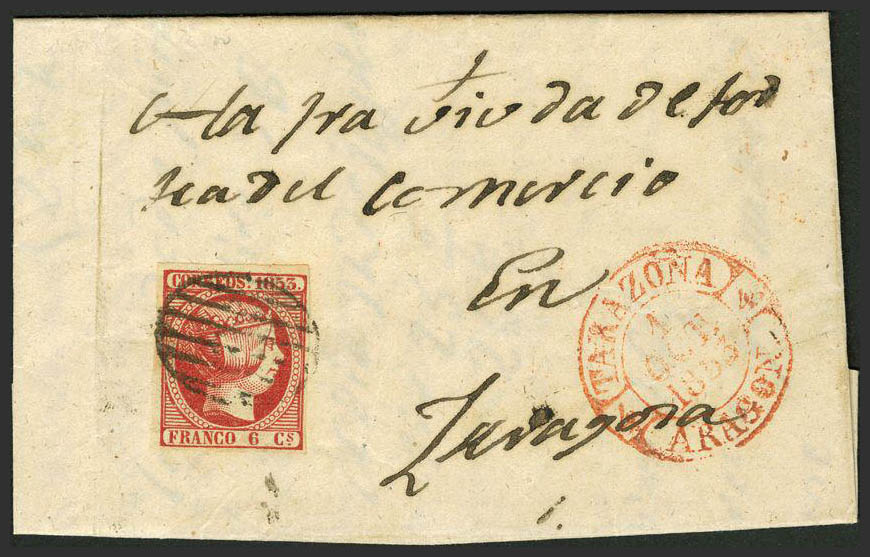 A la Sra Viuda de
del Comercio
En
Zaragoza
CORREOS. 1853.
FRANCO 6 Cs
TARAZONA
OCT
1853
ARAGON